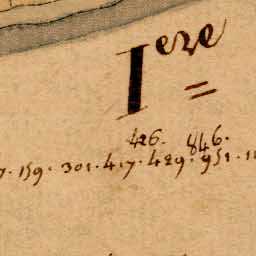 Iere
426. 846.
7. 159. 301. 417. 429. 951. 11